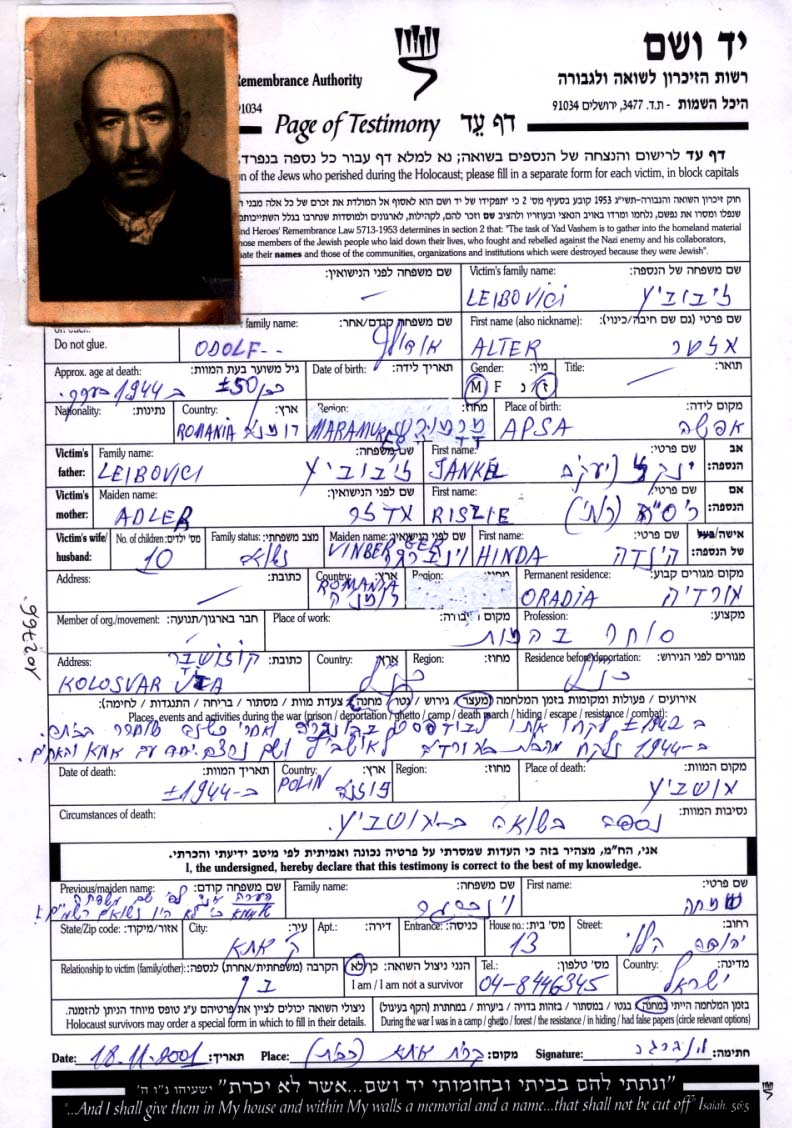 יד ושם
רשות הזיכרון לשואה ולגבורה
Remembrance Authority
היכל השמות - ת.ד. 3477, ירושלים 91034
91034
Page of Testimony דף עֵד
דף עד לרישום והנצחה של הנספים בשואה; נא למלא דף עבור כל נספה בנפרד,
n of the Jews who perished during the Holocaust; please fill in a separate form for each victim, in block capitals
חוק זיכרון השואה והגבורה-תשי"ג 1953 קובע בסעיף מס' 2 כי "תפקידו של יד ושם הוא לאסוף אל המולדת את זכרם של כל אלה מבני
שנפלו ומסרו את נפשם, נלחמו ומרדו באויב הנאצי ובעוזריו ולהציב שם וזכר להם, לקהילות, לארגונים ולמוסדות שנחרבו בגלל השתייכותם
nd Heroes' Remembrance Law 5713-1953 determines in section 2 that: "The task of Yad Vashem is to gather into the homeland material
hose members of the Jewish people who laid down their lives, who fought and rebelled against the Nazi enemy and his collaborators,
ate their names and those of the communities, organizations and institutions which were destroyed because they were Jewish".
שם משפחה לפני הנישואין: Victim's family name: שם משפחה של הנספה:
— LEIBOVICI ליבוביץ
Do not glue. family name: שם משפחה קודם/אחר: First name (also nickname): שם פרטי (גם שם חיבה/כינוי):
ODOLF-- אודולף ALTER אלטר
Approx. age at death: גיל משוער בעת המוות: Date of birth: תאריך לידה: Gender: מין: M F ז נ Title: תואר:
±50 ב-1944
Nationality: נתינות: Country: ארץ: Region: מחוז: Place of birth: מקום לידה:
ROMANIA רומניה MARAMUR APSA אפשה
Victim's father: Family name: שם משפחה: First name: שם פרטי: אב הנספה:
LEIBOVICI ליבוביץ JANKEL ינקל (יעקב)
Victim's mother: Maiden name: שם לפני הנישואין: First name: שם פרטי: אם הנספה:
ADLER אדלר RISLIE
Victim's wife/ husband: No. of children: מס' ילדים: Family status: מצב משפחתי: Maiden name: שם לפני הנישואין: First name: שם פרטי: אישה/בעל של הנספה:
10 נשוא VINBERGER וינברגר HINDA הינדה
Address: כתובת: Country: ארץ: Region: מחוז: Permanent residence: מקום מגורים קבוע:
ROMANIA רומניה ORADIA אורדיה
Member of org./movement: חבר בארגון/תנועה: Place of work: מקום עבודה: Profession: מקצוע:
סוחר בהמות
Address: כתובת: Country: ארץ: Region: מחוז: Residence before deportation: מגורים לפני הגירוש:
KOLOSVAR UTA כנ"ל כנ"ל
אירועים / פעולות ומקומות בזמן המלחמה (מעצר / גירוש / גטו / מחנה / צעדת מוות / מסתור / בריחה / התנגדות / לחימה):
Places, events and activities during the war (prison / deportation / ghetto / camp / death march / hiding / escape / resistance / combat):
ב ±1942 לקחו אותו לבודפסט
ב-1944 נלקח לאושביץ ושם יחד עם אמא
Date of death: תאריך המוות: Country: ארץ: Region: מחוז: Place of death: מקום המוות:
±ב-1944 POLIN פולין אושביץ
Circumstances of death: נסיבות המוות:
נספה בשואה באושביץ.
אני, הח"מ, מצהיר בזה כי העדות שמסרתי על פרטיה נכונה ואמיתית לפי מיטב ידיעתי והכרתי.
I, the undersigned, hereby declare that this testimony is correct to the best of my knowledge.
Previous/maiden name: שם משפחה קודם: Family name: שם משפחה: First name: שם פרטי:
וינברגר שמחה
State/Zip code: אזור/מיקוד: City: עיר: Apt.: דירה: Entrance: כניסה: House no.: מס' בית: Street: רחוב:
ק' אתא 13 יהודה הלוי
Relationship to victim (family/other): הקרבה (משפחתית/אחרת) לנספה: I am / I am not a survivor הנני ניצול השואה: כן/לא Tel.: מס' טלפון: Country: מדינה:
בן 04-8446345 ישראל
ניצולי השואה יכולים לציין את פרטיהם ע"ג טופס מיוחד הניתן להזמנה. בזמן המלחמה הייתי במחנה / בגטו / במסתור / בזהות בדויה / ביערות / במחתרת (הקף בעיגול)
Holocaust survivors may order a special form in which to fill in their details. During the war I was in a camp / ghetto / forest / the resistance / in hiding / had false papers (circle relevant options)
Date: 18.11.2001 תאריך: Place: קרית אתא מקום: Signature: וינברגר חתימה:
"ונתתי להם בביתי ובחומותי יד ושם...אשר לא יכרת" ישעיהו נ"ו ה'
"...And I shall give them in My house and within My walls a memorial and a name...that shall not be cut off" Isaiah. 56:5